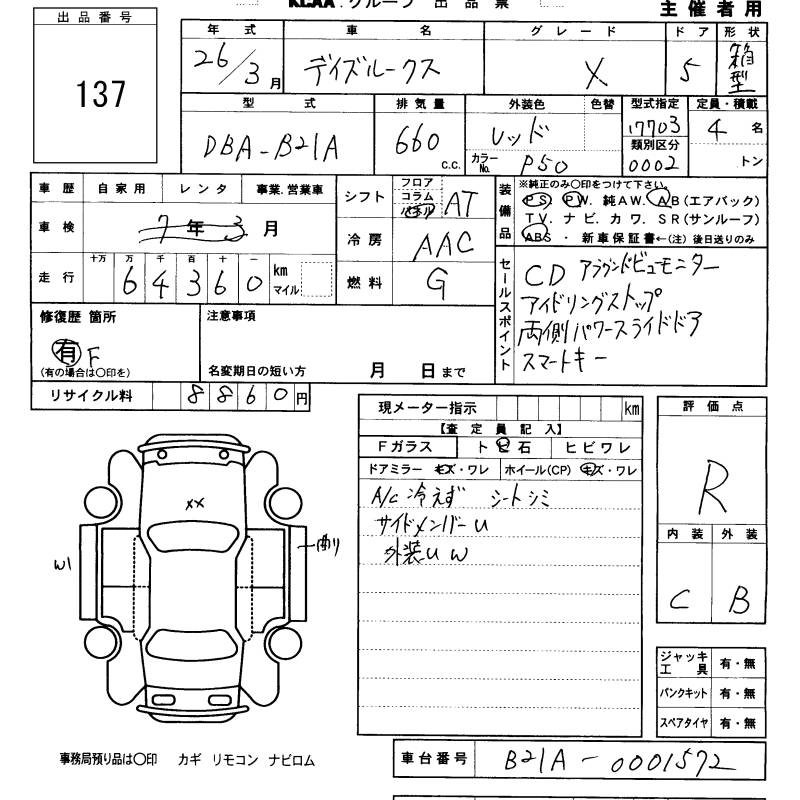 KCAA.グループ 出品票
主催者用
出品番号
137
年式 車名 グレード ドア 形状
26/3月 デイズルークス X 5 箱型
型式 排気量 外装色 色替 型式指定 定員・積載
DBA-B21A 660 c.c. レッド 17703 4名
カラーNo. P50 類別区分 0002 トン
車歴 自家用 レンタ 事業.営業車
車検 7年3月
走行 十万 万 千 百 十 一
64360 km マイル
シフト フロア コラム パネル AT
冷房 AAC
燃料 G
装備品 ※純正のみ〇印をつけて下さい。
PS. PW. 純AW. AB(エアバック)
TV. ナビ. カワ. SR(サンルーフ)
ABS ・ 新車保証書←(注)後日送りのみ
セールスポイント
CD アラウンドビューモニター
アイドリングストップ
両側パワースライドドア
スマートキー
修復歴 箇所
有 F
(有の場合は〇印を)
注意事項
名変期日の短い方 月 日まで
リサイクル料 8860円
現メーター指示 km
【査定員記入】
Fガラス トビ石 ヒビワレ
ドアミラー キズ・ワレ ホイール(CP) キズ・ワレ
A/C 冷えず シートシミ
サイドメンバーU
外装U W
評価点
R
内装 外装
C B
XX
W1
曲り
ジャッキ工具 有・無
パンクキット 有・無
スペアタイヤ 有・無
事務局預り品は〇印 カギ リモコン ナビロム
車台番号 B21A-0001572